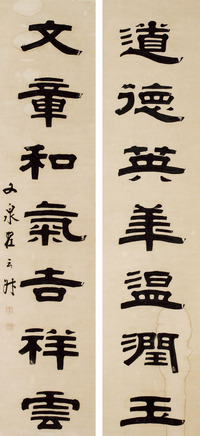 道德英華溫潤玉
文章和氣吉祥雲
文泉翟云升